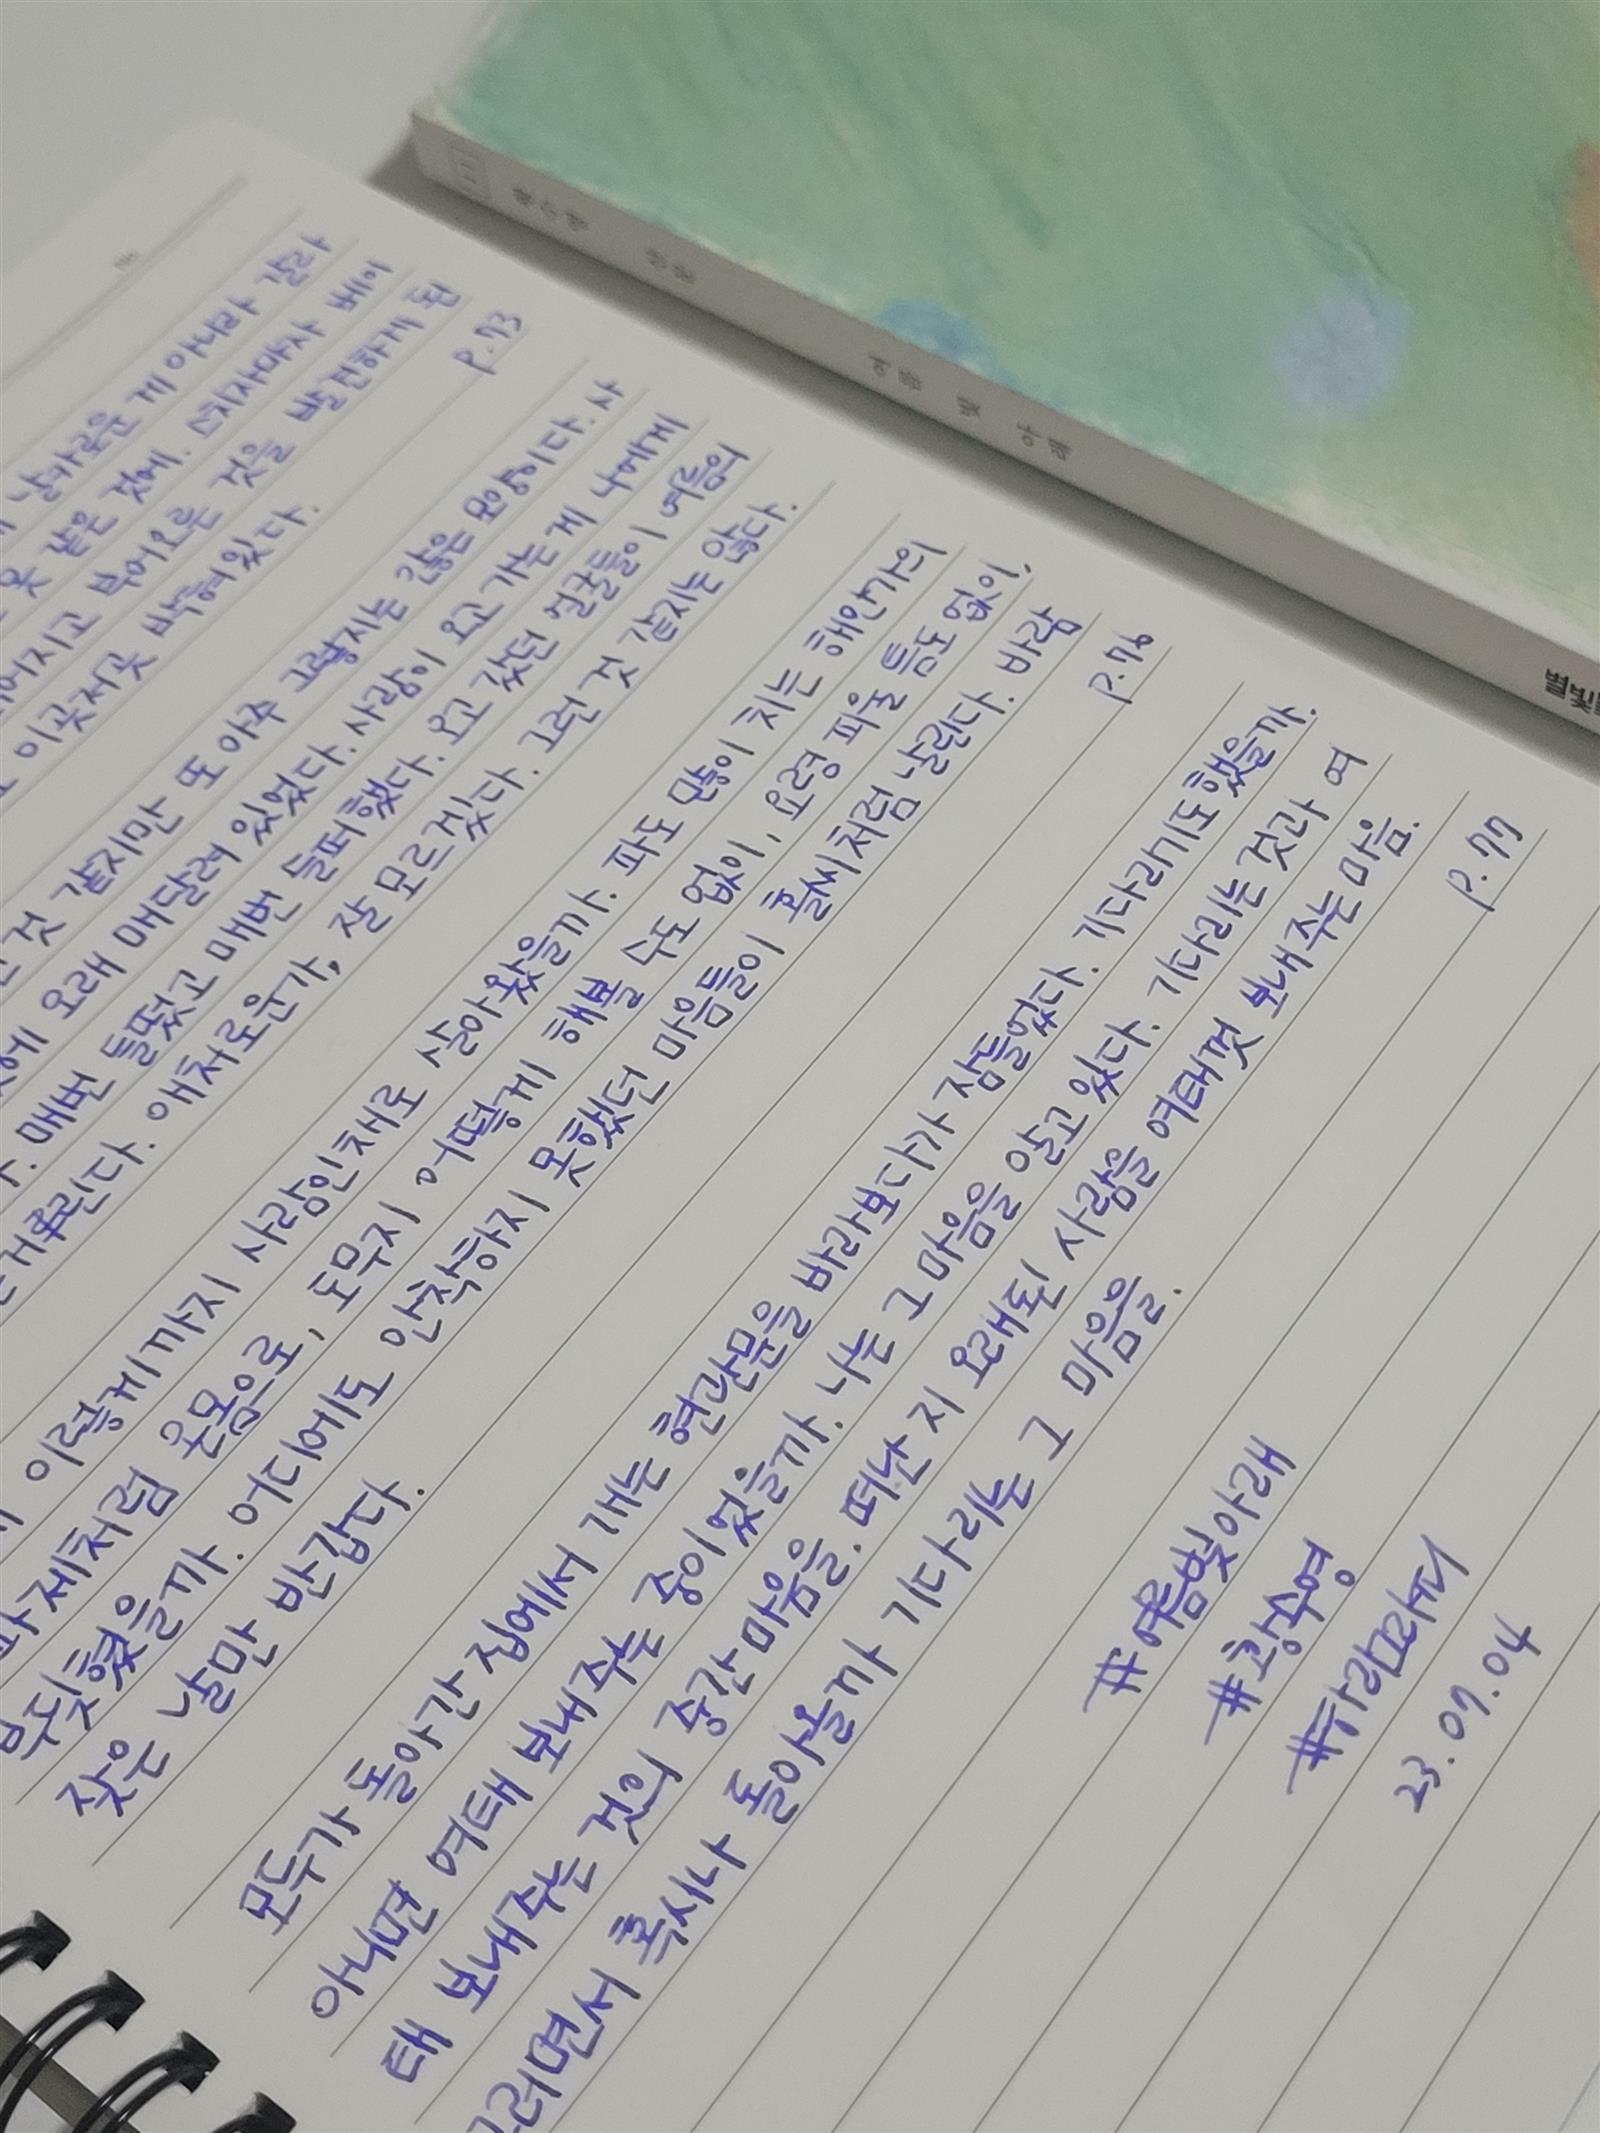 날카로운 게 아니라 갈라
못 같은 것에. 스치자마자 베이
어지고 부어오르는 것을 발견하게 된
이곳저곳 박혀있다.
p.73
것 같지만 또 아주 그렇지는 않은 모양이다. 사
에 오래 매달려 있었다. 사랑이 오고 가는 게 나에게
매번 들떴고 매번 슬퍼했다. 오고 갔던 얼굴들이 여름이
린다. 애처로운가, 잘 모르겠다. 그런 것 같지는 않다.
이렇게까지 사랑인채로 살아왔을까. 파도 많이 치는 해안가의
제처럼 온몸으로, 도무지 어떻게 해볼 수도 없이, 요령 피울 틈도 없이,
부딪혔을까. 어디에도 안착하지 못했던 마음들이 홀씨처럼 날린다. 바람
잦은 날만 반갑다.
p.76
모두가 돌아간 집에서 개는 현관문을 바라보다가 잠들었다. 기다리기도 했을까.
아니면 여태 보내주는 중이었을까. 나는 그 마음을 알고 있다. 기다리는 것과 여
태 보내주는 것의 중간 마음을. 떠난 지 오래된 사람을 여태껏 보내주는 마음.
그러면서 혹시나 돌아올까 기다리는 그 마음을.
p.77
#여름빛아래
#황수영
#타라그라피
23.07.04
황수영 산문 여름 빛 아래
별빛